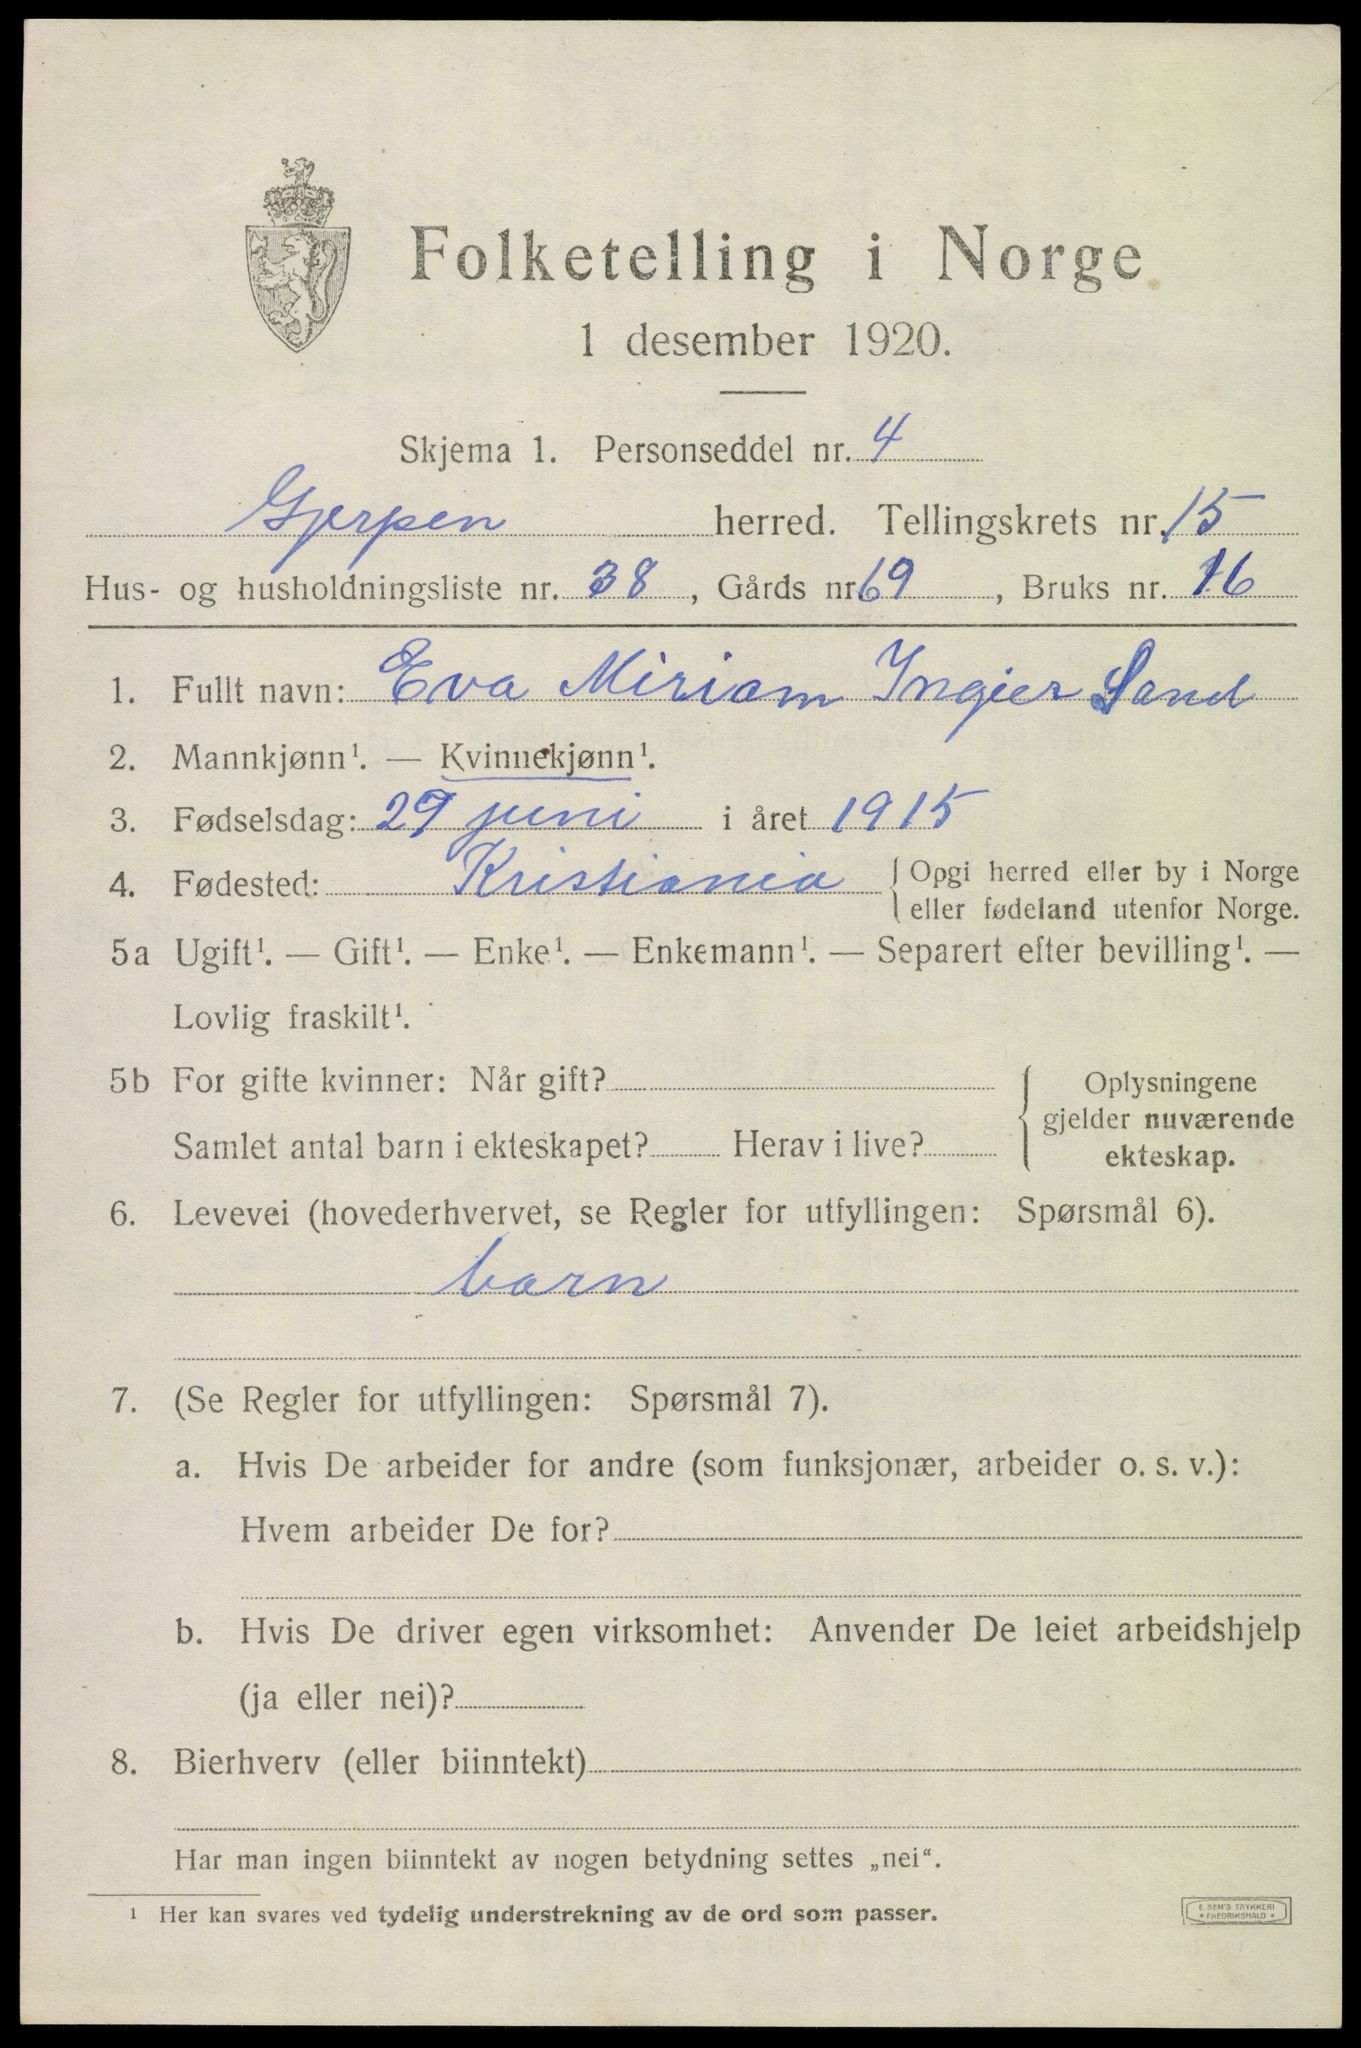 Folketelling i Norge
1 desember 1920.
Skjema 1. Personseddel nr. 4
Gjerpen herred. Tellingskrets nr. 15
Hus- og husholdningsliste nr. 38, Gårds nr. 69, Bruks nr. 16
1. Fullt navn: Eva Miriam Ingier Sand
2. Mannkjønn¹. — Kvinnekjønn¹.
3. Fødselsdag: 29 juni i året 1915
4. Fødested: Kristiania { Opgi herred eller by i Norge
eller fødeland utenfor Norge.
5a Ugift¹. — Gift¹. — Enke¹. — Enkemann¹. — Separert efter bevilling¹. —
Lovlig fraskilt¹.
5b For gifte kvinner: Når gift?
Samlet antal barn i ekteskapet? Herav i live?
Oplysningene
gjelder nuværende
ekteskap.
6. Levevei (hovederhvervet, se Regler for utfyllingen: Spørsmål 6).
barn
7. (Se Regler for utfyllingen: Spørsmål 7).
a. Hvis De arbeider for andre (som funksjonær, arbeider o. s. v.):
Hvem arbeider De for?
b. Hvis De driver egen virksomhet: Anvender De leiet arbeidshjelp
(ja eller nei)?
8. Bierhverv (eller biinntekt)
Har man ingen biinntekt av nogen betydning settes „nei“.
¹ Her kan svares ved tydelig understrekning av de ord som passer.
E. SEM'S TRYKKERI
* FREDRIKSHALD *